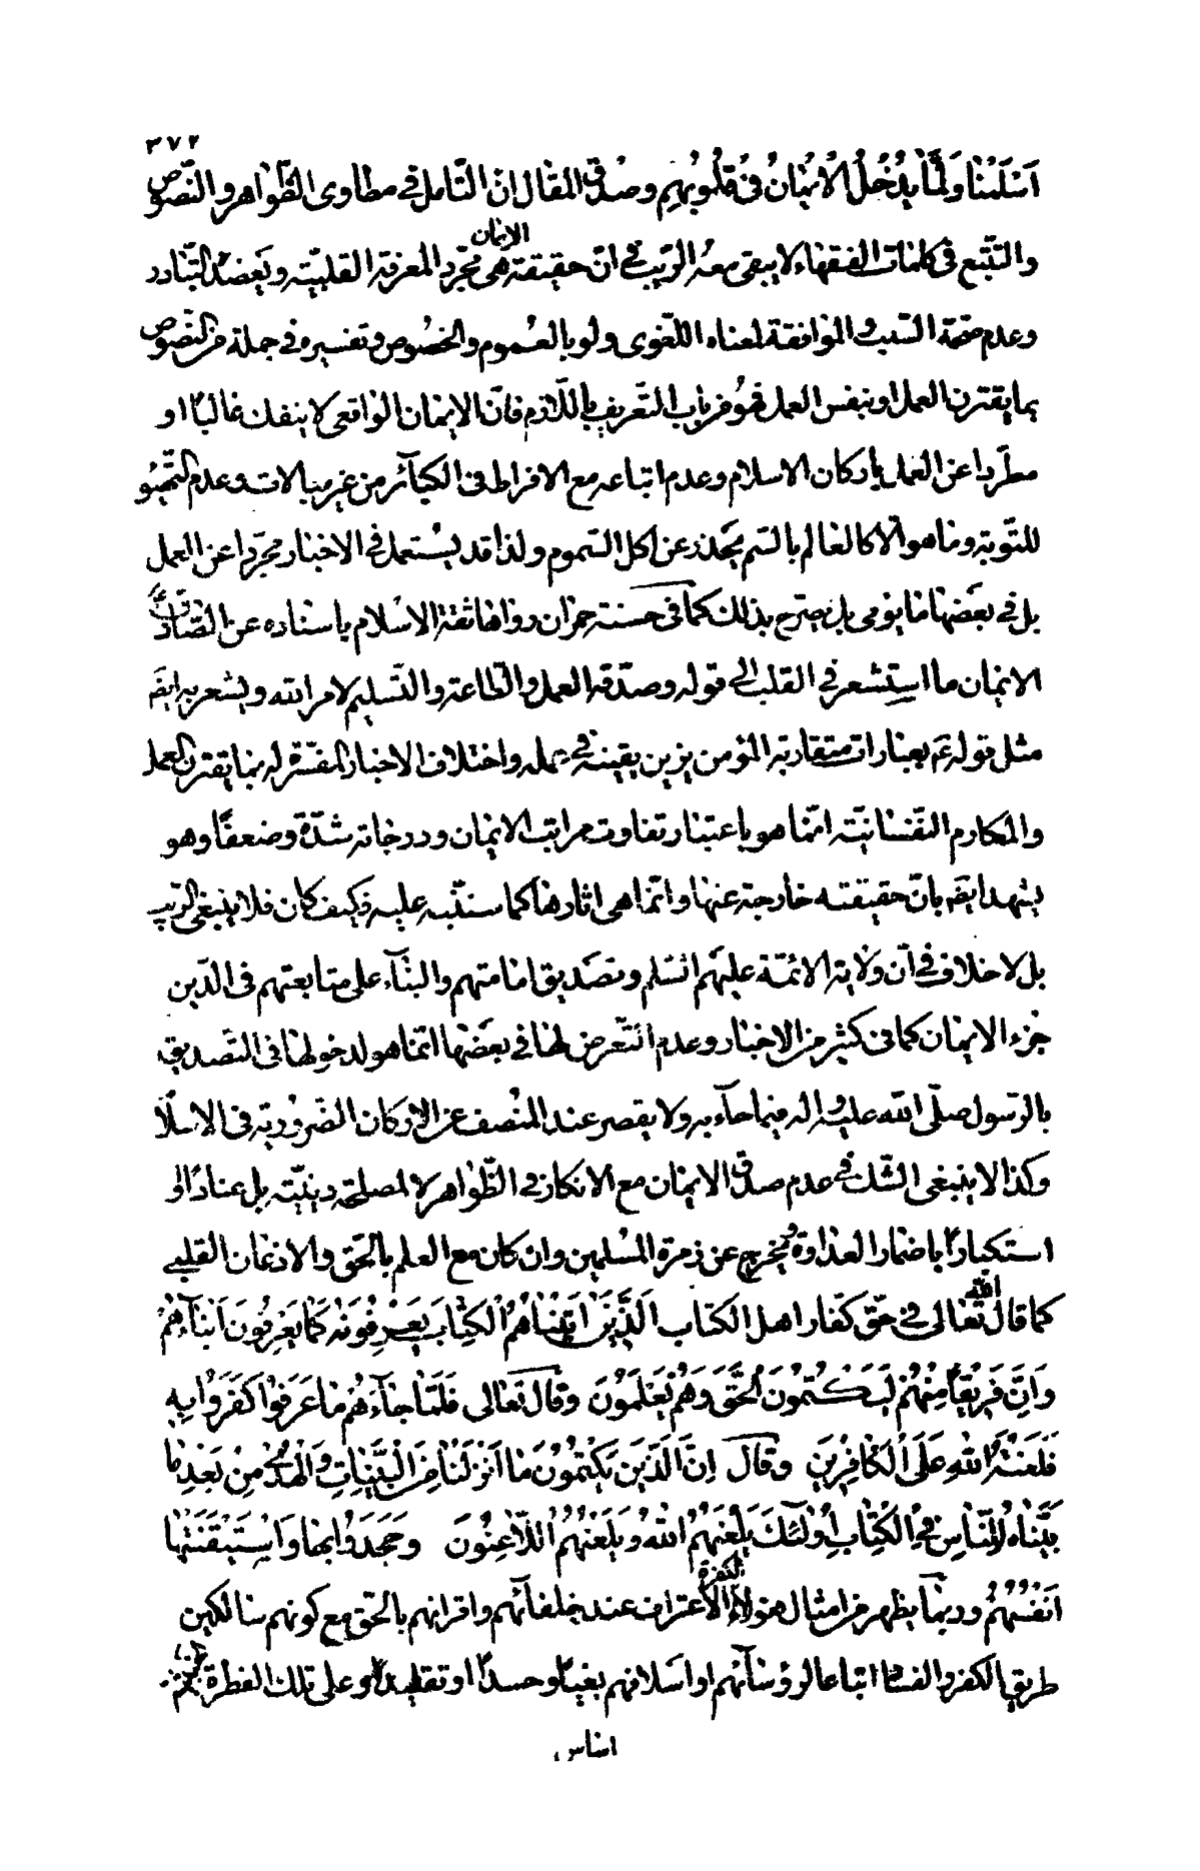 ٣٧٢
اَسْلَمْنٰا وَلَمَّا يَدْخُلِ الْاِيْمٰانُ فى قُلُوبِهِم وصدق المقال ان التّامل فى مطاوى الظّواهر والنّصوص
والتّتبع فى كلمات الفقهاء لا يبقى معه الرّيب فى انّ حقيقة الايمان هى مجرّد المعرفة القلبيّة ويعضده التّبادر
وعدم صحّة السّلب والموافقة لمعناه اللّغوى ولو بالعموم والخصوص وتفسيره فى جملة من النّصوص
بما يقترن العمل او بنفس العمل فهو من باب التّعريف باللّازم فانّ الايمان الواقعى لا ينفك غالبًا او
مطّردا عن العمل باركان الاسلام وعدم اتباعه مع الافراط فى الكبآئر من غير مبالات وعدم التّهيّؤ
للتّوبة وما هو الّا كالعالم بالسّم يحذر عن اكل السّموم ولذا قد يستعمل فى الاخبار مجرّدا عن العمل
بل فى بعضها ما يؤمى بل يصرّح بذلك كما فى حسنة حمران رواها ثقة الاسلام باسناده عن الصّادق
الايمان ما استشعر فى القلب الى قوله وصدّقه العمل والطّاعة والتّسليم لامر الله ويشعر به ايضَ
مثل قوله عَم بعبارات متقاربة المؤمن يزين يقينه فى عمله واختلاف الاخبار المفسّرة له بما يقترن العمل
والمكارم النّفسانيّة انّما هو باعتبار تفاوت مراتب الايمان ودرجاته شدّة وضعفًا وهو
يشهد ايضَ بانّ حقيقته خارجة عنها وانّما هى اثارها كما سننبّه عليه فكيف كان فلا ينبغى الرّيب
بل لا خلاف فى ان ولاية الائمّة عليهم السّلم وتصديق امامتهم والبنآء على متابعتهم فى الدّين
جزء الايمان كما فى كثير من الاخبار وعدم التّعرض لها فى بعضها انّما هو لدخولها فى التّصديق
بالرّسول صلّى الله عليه واله فيما جآء به ولا يقصر عند المنصف عن الاركان الضّروريّة فى الاسلا
وكذا لا ينبغى الشّك فى عدم صدق الايمان مع الانكار فى الظّواهر لا لمصلحة دينيّة بل عنادًا او
استكبارًا باضمار العداوة ويخرج عن زمرة المسلمين وان كان مع العلم بالحّق والاذعان القلبى
كما قال الله تعالى فى حقّ كفّار اهل الكتاب اَلَّذينَ اتَيْنٰاهُمُ الْكِتٰابَ يَعْرِفُونَهُ كَمٰا يَعْرِفُونَ اَبْنٰآءَهُمْ
وَاِنَّ فَرِيقًا مِنْهُمْ لَيَكْتُمُونَ الْحَّقَ وَهُمْ يَعْلَمُونَ وقال تعالى فَلَمّٰا جٰآءَهُمْ مٰا عَرَفُوا كَفَرُوا بِهِ
فَلَعْنَةُ اللهِ عَلَى الْكٰافِرِينَ وقال اِنَّ الَّذينَ يَكْتُمُونَ مٰا اَنْزَلْنٰا مِنَ الْبَيِّنٰاتِ وَالْهُدىٰ مِنْ بَعْدِ مٰا
بَيَّنّٰاهُ لِلنّٰاسِ فِى الْكِتٰابِ اُولٰئِكَ يَلْعَنُهُمُ اللهُ وَيَلْعَنُهُمُ اللّاعِنُونَ وَجَحَدُوا بِهٰا وَاسْتَيْقَنَتْهٰا
اَنْفُسُهُمْ وربمّا يظهر من امثال هؤلاء الكفرة الاعتراف عند خلفآئهم واقرانهم بالحّق مع كونهم سالكين
طريق الكفر والفساد اتباعا لرؤسآئهم او اسلافهم بغيًا وحسدًا او تقليدًا وعلى تلك الفطرة
اساس